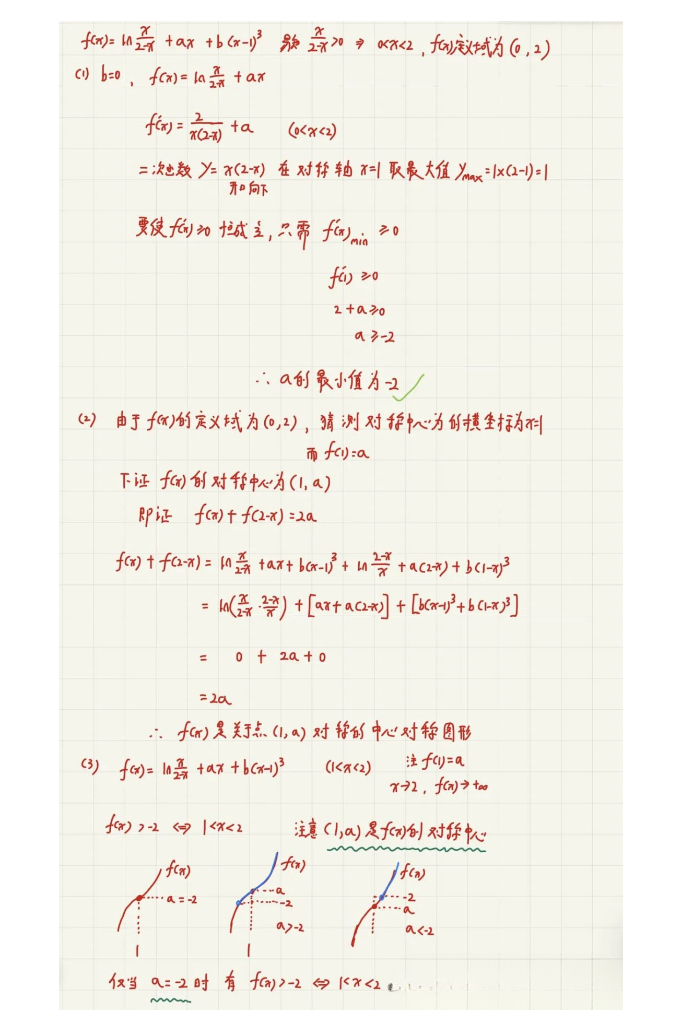 f(x)= ln x/(2-x) + ax + b(x-1)³ 易知 x/(2-x)>0 ⇒ 0<x<2 , f(x)定义域为(0,2)
(1) b=0 , f(x)= ln x/(2-x) + ax
f'(x)= 2/(x(2-x)) +a (0<x<2)
二次函数 y= x(2-x) 在对称轴 x=1 取最大值 yₘₐₓ=1×(2-1)=1
开口向下
要使 f'(x)≥0 恒成立, 只需 f'(x)min ≥0
f'(1) ≥0
2+a≥0
a≥-2
∴ a的最小值为-2 ✓
(2) 由于f(x)的定义域为(0,2), 猜测对称中心为的横坐标为x=1
而 f(1)=a
下证 f(x)的对称中心为(1,a)
即证 f(x)+f(2-x)=2a
f(x)+f(2-x)= ln x/(2-x) +ax+b(x-1)³ + ln (2-x)/x + a(2-x)+b(1-x)³
= ln(x/(2-x) · (2-x)/x) + [ax+a(2-x)] + [b(x-1)³+b(1-x)³]
= 0 + 2a+0
=2a
∴ f(x)是关于点(1,a)对称的中心对称图形
(3) f(x)= ln x/(2-x) +ax+b(x-1)³ (1<x<2) 注 f(1)=a
x→2, f(x)→+∞
f(x)>-2 ⇔ 1<x<2 注意(1,a)是f(x)的对称中心
f(x) f(x) f(x)
a=-2 a -2
-2 a
a>-2 a<-2
1 1
仅当 a=-2 时 有 f(x)>-2 ⇔ 1<x<2